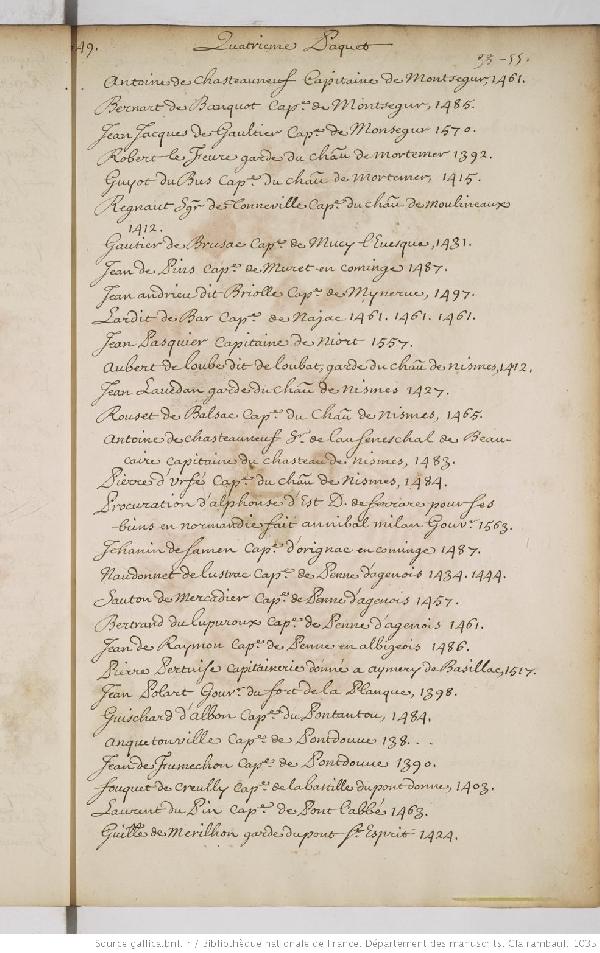 49. Quatrieme Paquet
53-55.
Antoine de chasteauneuf Capitaine de Montsegur, 1461.
Bernart de Banquot Cap.ne de Montsegur, 1485.
Jean Jacques de Gaultier Cap.ne de Monsegur 1570.
Robert le Feure garde du chãu de mortemer 1392.
Guyot du Bus Cap.ne du chãu de Mortemer, 1415.
Regnaut Sgr. de Conneville Cap.ne du chãu de Moulineaux
1412.
Gautier de Brusac Cap.ne de Mucy l'Euesque, 1431.
Jean de Pins Cap.ne de Muret en cominge 1487.
Jean andrieu dit Briolle Cap.ne de Mynerue, 1497.
Lardit de Bar Cap.ne de Najac 1461. 1461. 1461.
Jean Pasquier Capitaine de Niort 1557.
Aubert de loube dit de loubat, garde du chãu de nismes, 1412.
Jean Lauedan garde du chãu de nismes 1427.
Rouset de Balsac Cap.ne du Chãu de Nismes, 1465.
Antoine de chasteauneuf Sr. de Lau seneschal de Beau-
caire capitaine du chasteau de nismes, 1483.
Pierre d'Vrfé Cap.ne du chãu de Nismes, 1484.
Procuration d'alphonse d'Est D. de ferrare pour ses
biens en normandie fait annibal milan Gouvr. 1563.
Jehanin de samen Cap.ne d'orignac en cominge 1487.
Naudonnet de lustrac Cap.ne de Penne d'agenois 1434. 1444.
Sauton de Mercadier Cap.ne de Penne d'agenois 1457.
Bertrand du lupuroux Cap.ne de Penne d'agenois 1461.
Jean de Raymon Cap.ne de Penne en albigeois 1486.
Pierre Pertuise Capitainerie donné a aymery de Basillac, 1517.
Jean Polart Gouvr. du fort de la Planque, 1398.
Guischard d'albon Cap.ne du Pontantou, 1484.
anquetouville Cap.ne de Pontdouue 138...
Jean de Fumechon Cap.ne de Pontdouue 1390.
fouquet de creully Cap.ne de la bastille du pont donne, 1403.
Laurent du Pin Cap.ne de Pont l'abbé 1463.
Guille de Merillion garde du pont St. Esprit 1424.
Source gallica.bnf.fr / Bibliothèque nationale de France. Département des manuscrits. Clairambault 1035